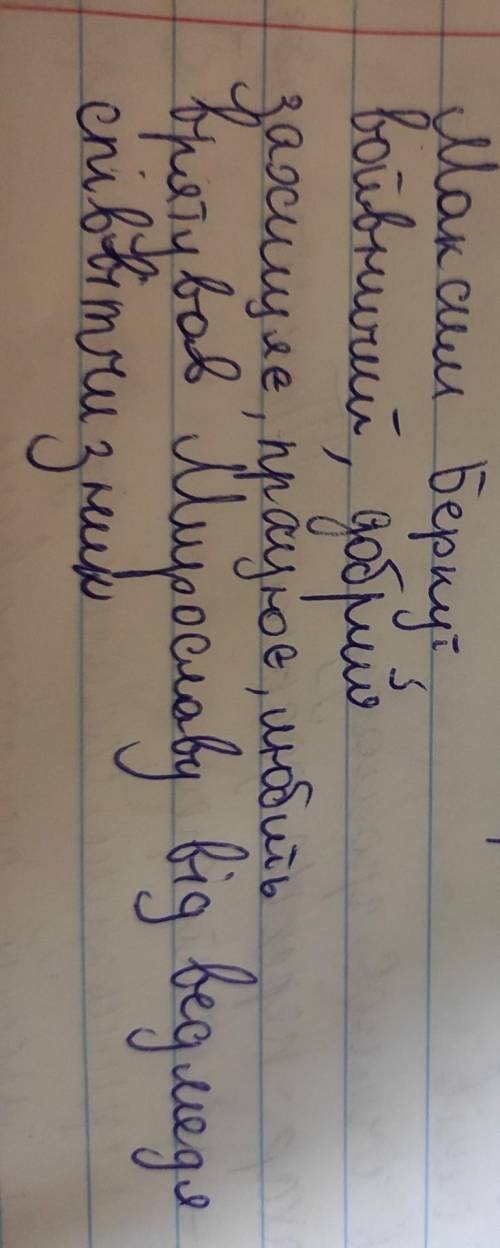 Максим Беркут
войвничий, добрий
захищяє, працює, любить
врятував Мирославу від ведмедя
співвітчизник